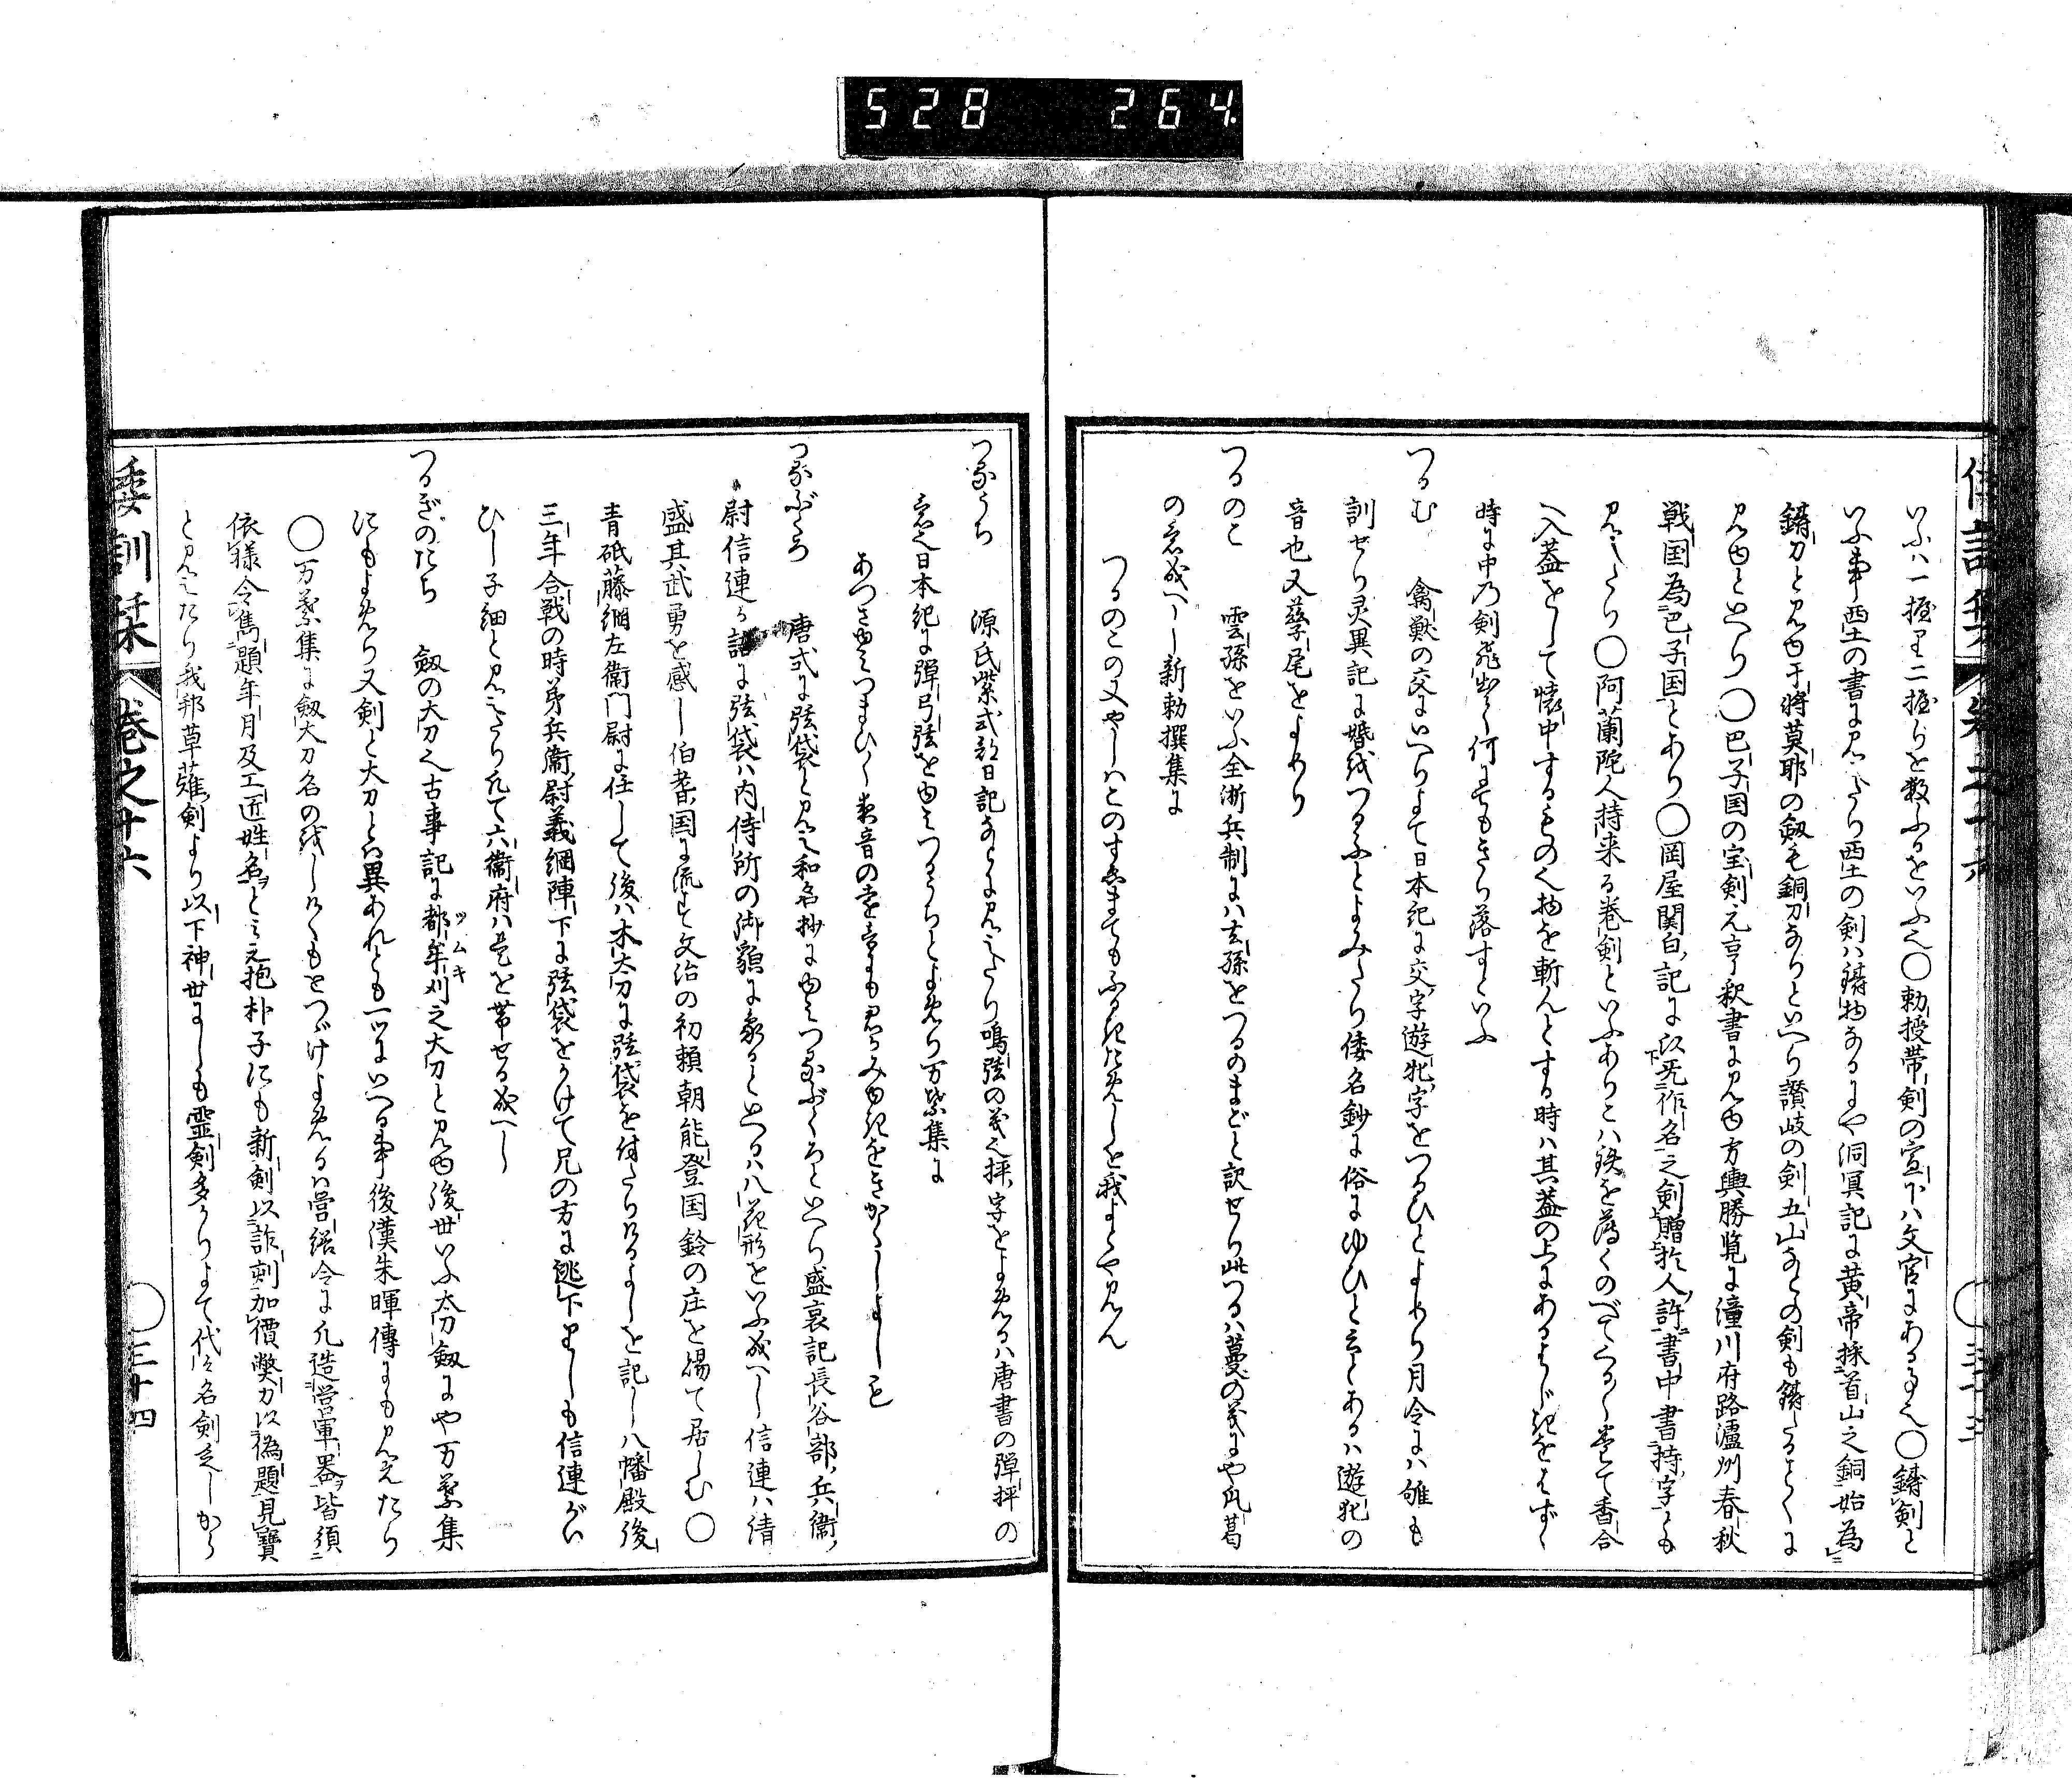 528 264
いふハ一握里二握らを数ふるをいふ也○勅授帯剣の宣下ハ文官にある事也○鋳剣と
いふ事西土の書に見えたり西土の剣ハ鋳物なるにや洞冥記に黄帝採首山之銅始為
鋳刀と見ゆ干将莫耶の剱も銅刀なりといへり讃岐の剣五山などの剣も鋳たることくに
見ゆといへり○巴子国の宝剣元亨釈書に見ゆ方輿勝覧に潼川府路瀘州春秋
戦国為巴子国とあり○岡屋関白記に以无作名之剣贈於人許書中書持字とも
見えたり○阿蘭陀人持来る巻剣といふありこハ鉄を薄くのべてつるく巻て香合
へ入蓋をして懐中するもの也物を斬んとする時ハ其蓋の上にあるはじきをはずく
時に中乃剣飛出て何にてもきり落すといふ
つるむ 禽獣の交にいへりよて日本紀に交字遊牝字をつるひとよめり月令にハ雊も
訓せり灵異記に婚をつるふとよみたり倭名鈔に俗にゆひと云とあるハ遊牝の
音也又孳尾をよめり
つるのこ 雲孫をいふ全浙兵制にハ玄孫をつるのまごと訳せり此つるハ蔓の義にや瓜葛
の意成へし新勅撰集に
つるのこの又やしハこのすゑまてもふるきためしを我よとや見ん
つるうち 源氏紫式部日記なとに見えたり鳴弦の義也抨字をよめるハ唐書の弾抨の
意也日本紀に弾弓弦をゆみつるうちとよめり万葉集に
あつさゆみつまひく夜音の遠音にも君かみゆきをきかくしよしも
つるぶくろ 唐式に弦袋と見え和名抄にゆみつるぶくろといへり盛衰記長谷部兵衛
尉信連か語に弦袋ハ内侍所の御貌に象るといへるハ八花形をいふ成へし信連ハ清
盛其武勇を感し伯耆国に流す文治の初頼朝能登国鈴の庄を賜て居しむ○
青砥藤綱左衛門尉に任して後ハ木太刀に弦袋を付たりけるよしを記し八幡殿後
三年合戦の時弟兵衛尉義綱陣下に弦袋をかけて兄の方に逃下りしも信連がい
ひし子細と見えたり凡て六衛府ハ是を帯せる成へし
つるぎのたち 剱の大刀也古事記に都牟刈之大刀と見ゆ後世いふ太刀剱にや万葉集
にもよめり又剣と大刀とハ異あれとも一にいへる事後漢朱暉傳にも見えたり
○万葉集に剱大刀名の或しけくもとつげよめるハ営繕令に凡造営軍器皆須
依様令鐫題年月及工匠姓名とみえ抱朴子にも新剣以詐刻加價弊刀以偽題見寶
と見えたり我邦草薙剣より以下神世にしも霊剣多かりよて代々名剣乏しから
倭訓栞 巻之十六 三十四
倭訓栞 巻之十六 三十三